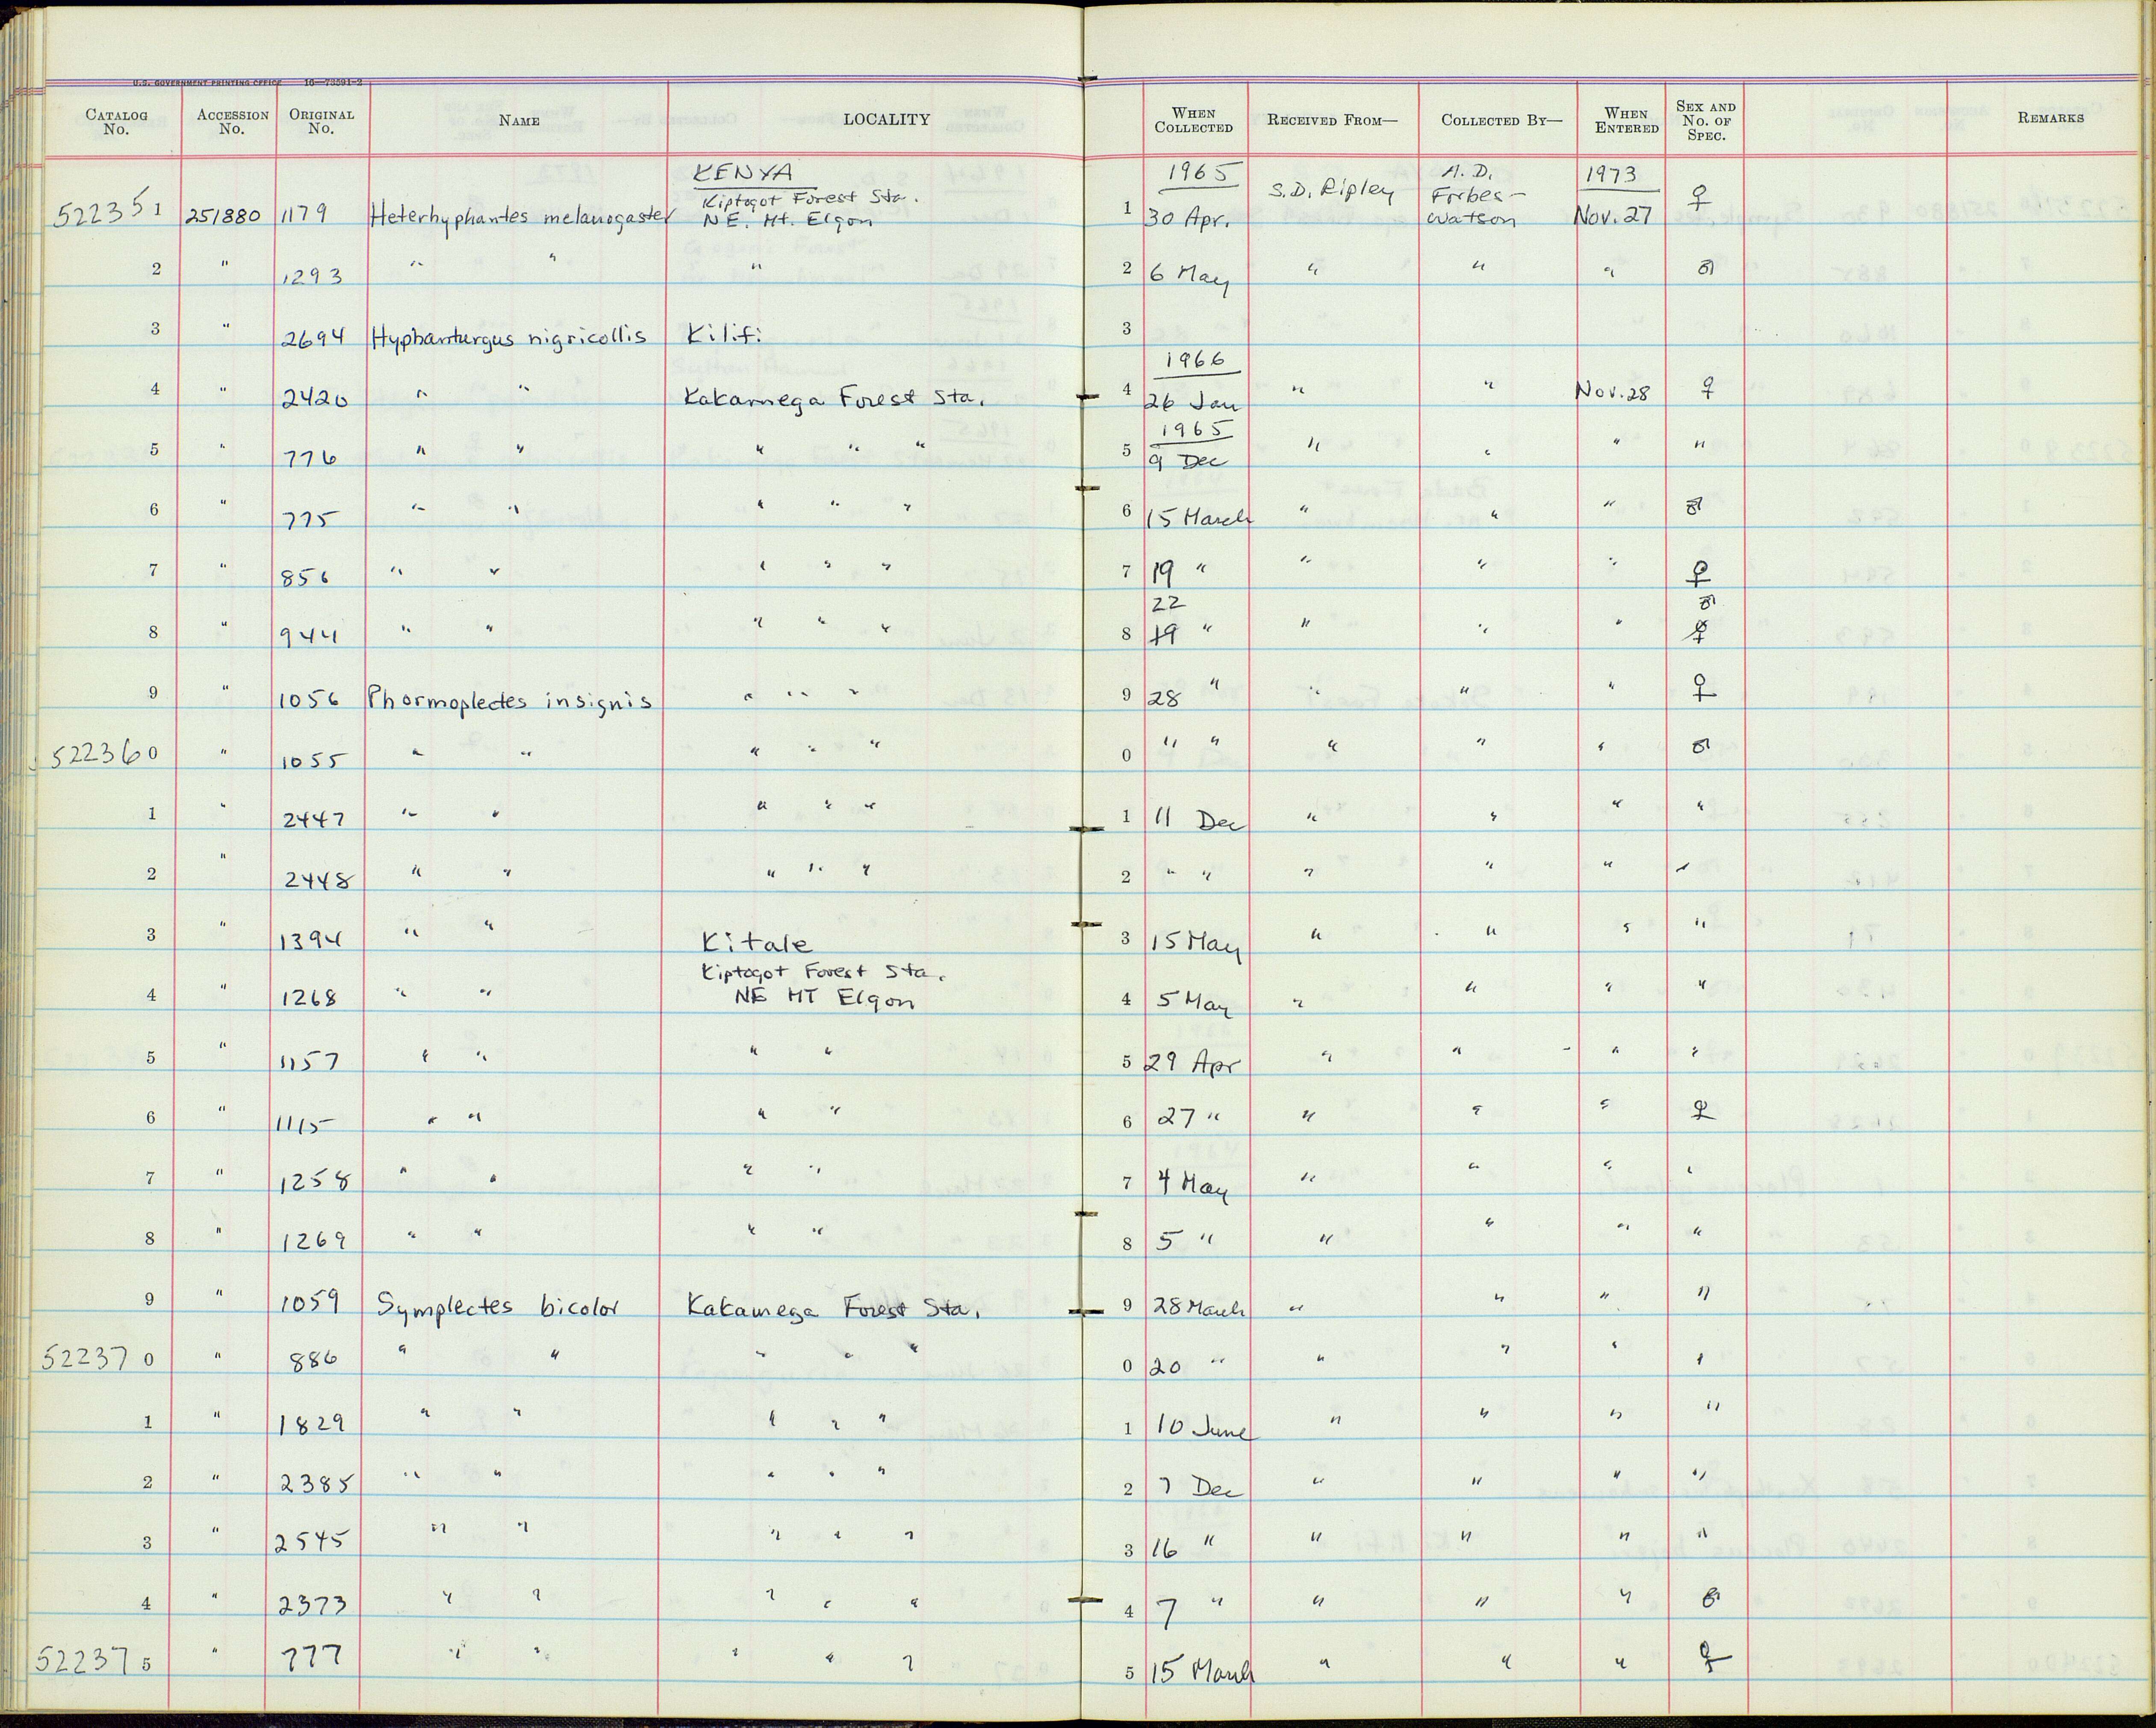 U.S. GOVERNMENT PRINTING OFFICE 16—73591-2
CATALOG No. ACCESSION No. ORIGINAL No. NAME LOCALITY WHEN COLLECTED RECEIVED FROM— COLLECTED BY— WHEN ENTERED SEX AND No. OF SPEC. REMARKS
KENYA 1965 A. D. 1973
Kiptogot Forest Sta. S.D. Ripley Forbes-
522351 251880 1179 Heterhyphantes melanogaster NE. Mt. Elgon 1 30 Apr. Watson Nov. 27 ♀
2 " 1293 " " " 2 6 May " " " ♂
3 " 2694 Hyphanturgus nigricollis Kilifi 3
1966
4 " 2420 " " Kakamega Forest Sta. 4 26 Jan " " Nov. 28 ♀
1965
5 " 776 " " " " " 5 9 Dec " " " "
6 " 775 " " " " " 6 15 March " " " ♂
7 " 856 " " " " " 7 19 " " " " ♀
22 ♂
8 " 944 " " " " " 8 19 " " " " ♀
9 " 1056 Phormoplectes insignis " " " 9 28 " " " " ♀
522360 " 1055 " " " " " 0 " " " " " ♂
1 " 2447 " " " " " 1 11 Dec " " " "
2 " 2448 " " " " " 2 " " " " " "
3 " 1394 " " Kitale 3 15 May " " " "
Kiptogot Forest Sta.
4 " 1268 " " NE MT Elgon 4 5 May " " " "
5 " 1157 " " " " 5 29 Apr " " " "
6 " 1115 " " " " 6 27 " " " " ♀
7 " 1258 " " " " 7 4 May " " " "
8 " 1269 " " " " 8 5 " " " " "
9 " 1059 Symplectes bicolor Kakamega Forest Sta. 9 28 March " " " "
522370 " 886 " " " " " 0 20 " " " " "
1 " 1829 " " " " " 1 10 June " " " "
2 " 2385 " " " " " 2 7 Dec " " " "
3 " 2545 " " " " " 3 16 " " " " "
4 " 2373 " " " " " 4 7 " " " " ♂
522375 " 777 " " " " " 5 15 March " " " ♀